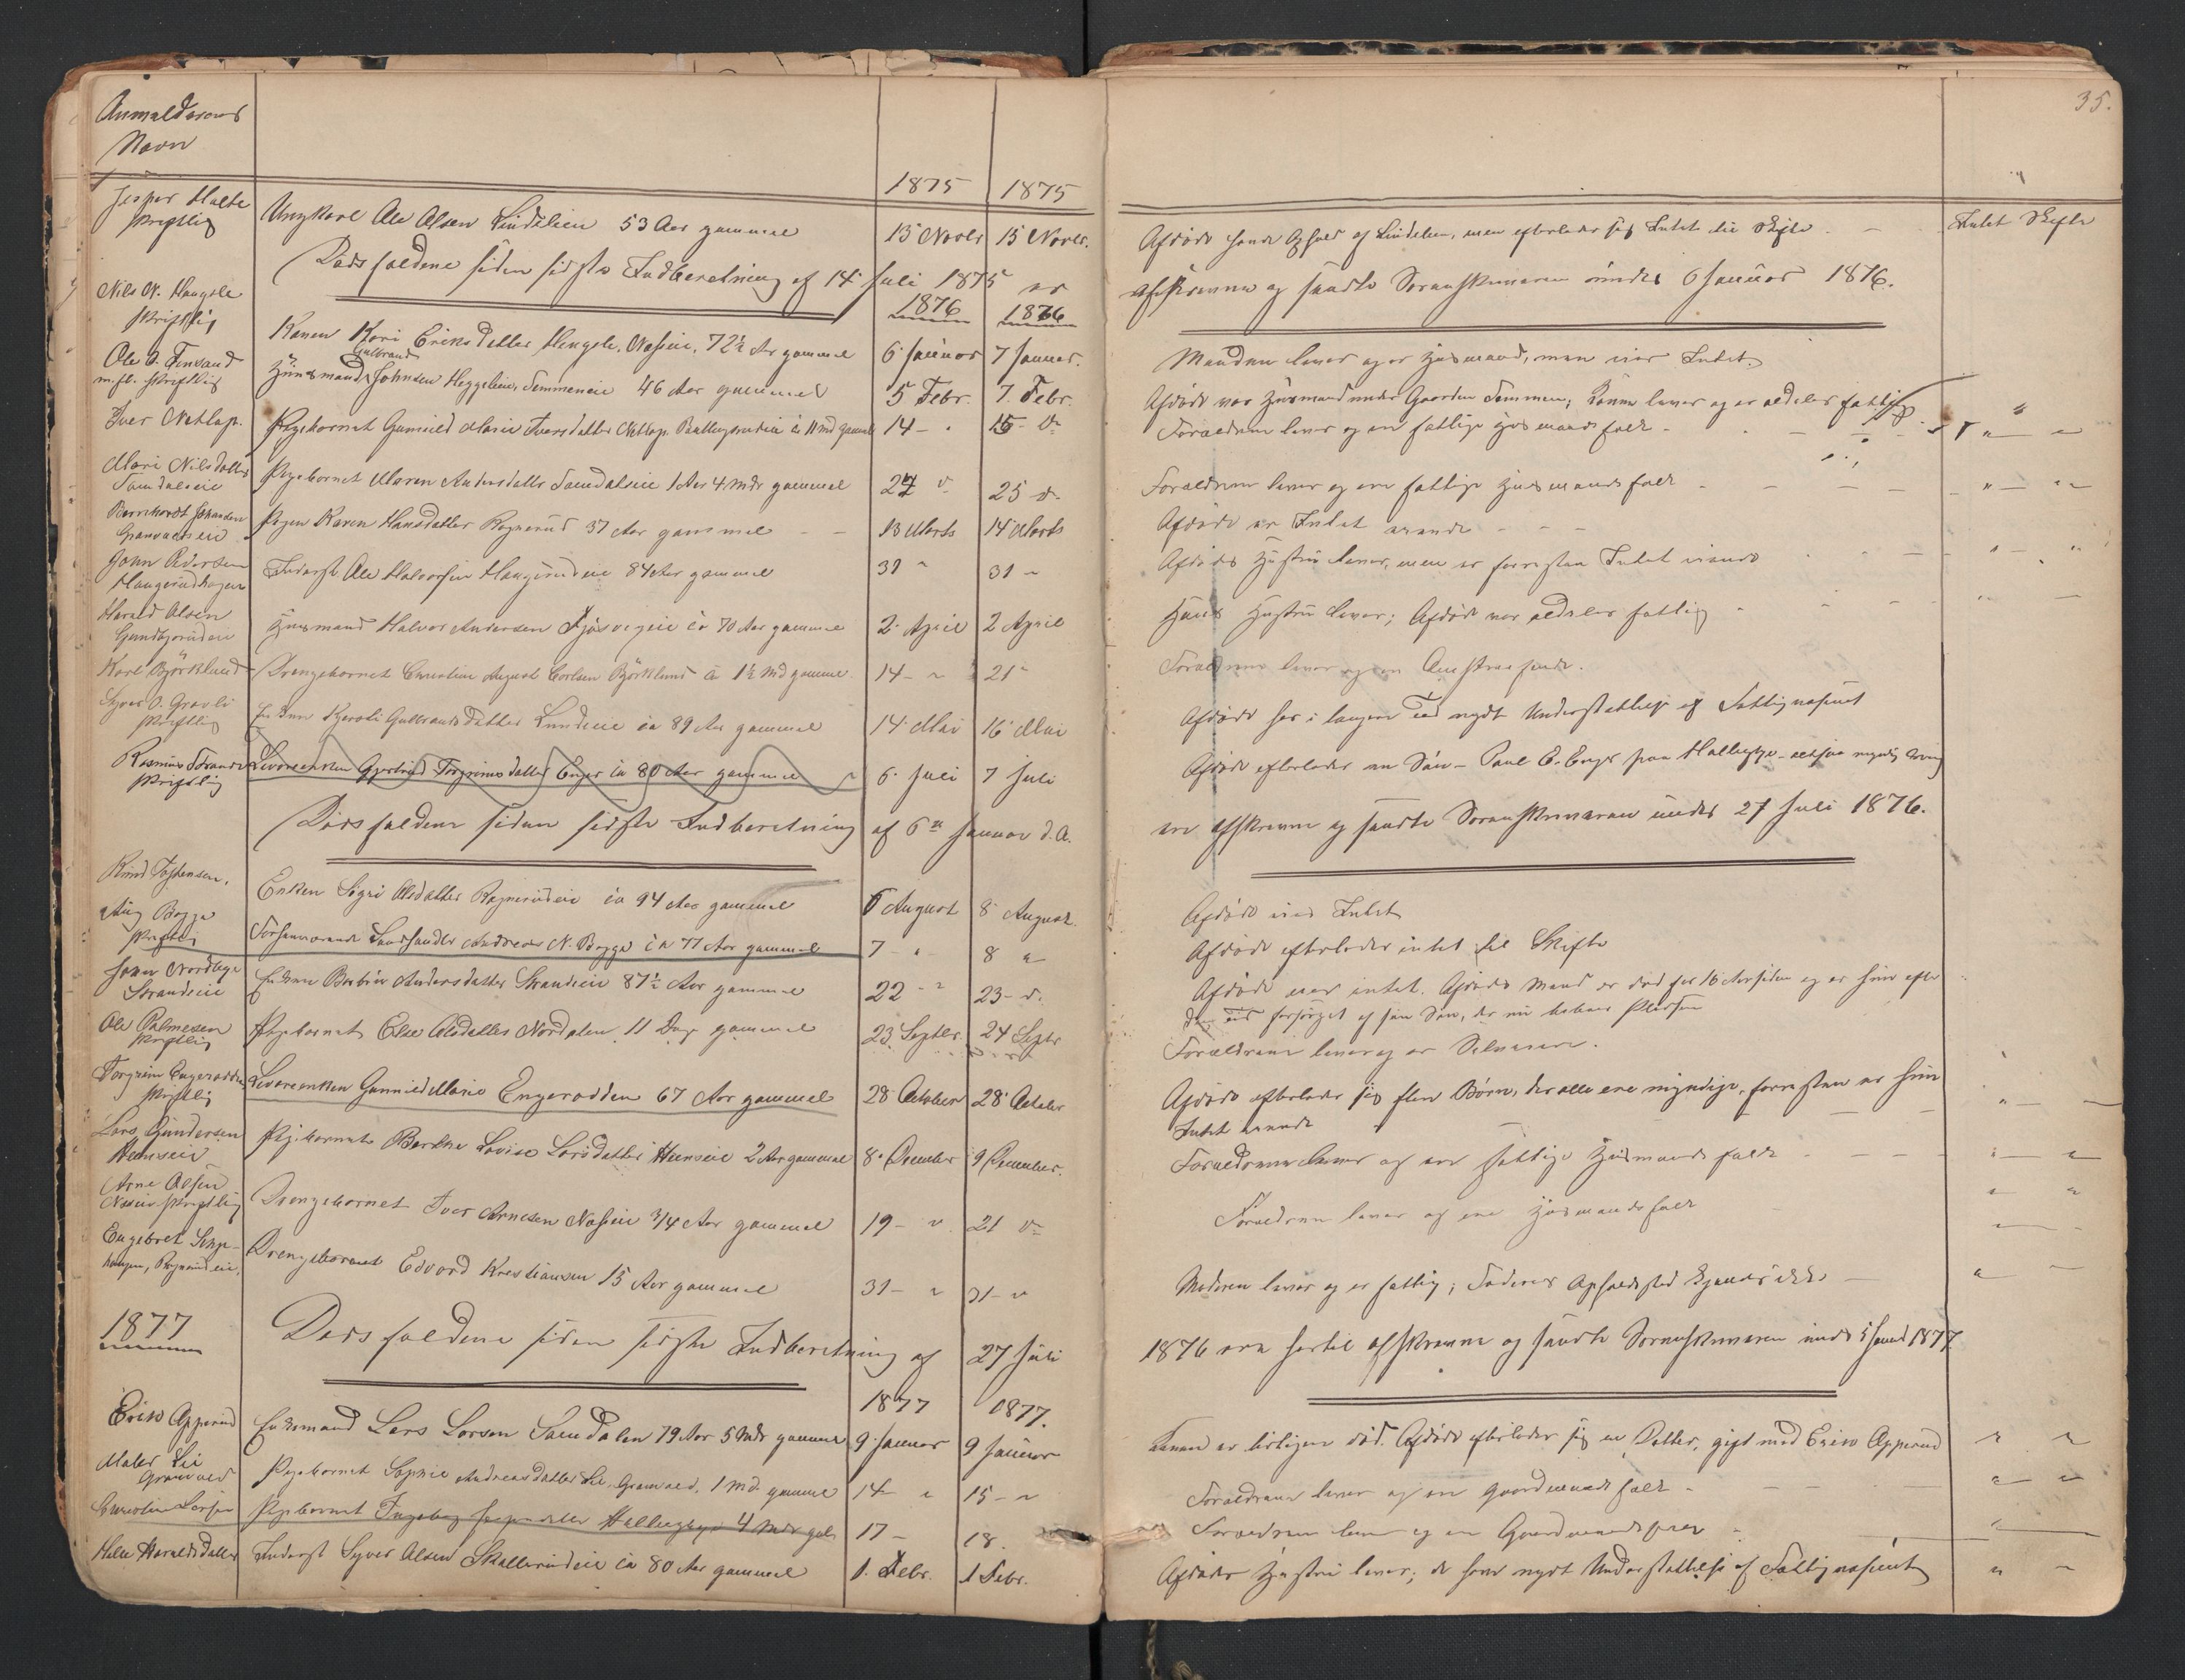 Anmelderens
Navn
35.
1875 1875
Jesper Halte
skriftlig
Ungkarl Ole Olsen Lindelien 53 Aar gammel 15 Novbr 15 Novbr.
Afdøde havde Ophold af Lindelien, men efterlader sig Intet til Skifte - Intet Skifte
Dødsfaldene siden sidste Indberetning af 14 Juli 1875 er
afskrevne og sendte Sorenskriveren under 6 Januar 1876.
1876 1876
Nils N. Haugsle
skriftlig
Konen Kari Eriksdatter Haugsle, Næseie, 72½ Aar gammel 6 Januar 7 Januar.
Manden lever og er Husmand, men eier Intet.
Ole O. Finsand
m. fl. skriftlig
Husmand Gulbrand Johnsen Heggelien, Semmeneie 46 Aar gammel 5 Febr. 7. Febr.
Afdøde var Husmand under Gaarden Semmen; Konen lever og er aldeles fattig
Iver Nætlap.
Pigebarnet Gunild Marie Iversdatter Nætlap, ca 11 Md gammel 14 - " 15 - "
Forældrene lever og ere fattige Husmandsfolk - " "
Mari Nilsdatter
Samdaleie
Pigebarnet Maren Andersdatter Samdaleie 1 Aar 4 Mdr gammel 24 " 25 "
Forældrene lever og ere fattige Husmandsfolk - " "
Bernhardt Johansen
Pigen Karen Hansdatter Ragnerud 37 Aar gammel - - 13 Marts 14 Marts
Afdøde er Intet eiende - - -
John Pedersen
Haugerudhagen
Inderst Ole Halvorsen Haugerudeie 84 Aar gammel 31 " 31 "
Afdødes Hustru lever, men er forresten Intet eiende
Harald Olsen
Gundbjørudeie
Husmand Halvor Andersen Kjøsvigeie ca 70 Aar gammel 2 April 2 April
Hans Hustru lever; Afdøde var aldeles fattig
Karl Björklund
Drengebarnet Christian August Carlsen Björklund ca 1½ Md gammel 14 - " 21 "
Forældrene lever og ere
Syver O. Gravli
skriftlig
Enken Kjersti Gulbrandsdatter Lundeie ca 89 Aar gammel 14 Mai 16 Mai
Afdøde har i længere Tid nydt Understøttelse af Fattigvæsenet
Rasmus Strande
skriftlig
Levoreenken Gjertrud Torgrimsdatter Enger ca 80 Aar gammel 6. Juli 7 Juli
Afdøde efterlader en Søn - Paul E. Enger paa Hallingby - altsaa myndig Arving
Dødsfaldene siden sidste Indberetning af 6te Januar d. A.
ere afskrevne og sendte Sorenskriveren under 27 Juli 1876.
Knud Tostensen.
Enken Sigri Olsdatter Ragnerudeie ca 94 Aar gammel 6 August 8 August
Afdøde eied Intet
Aug Bogge
skriftlig
Forhenværende Landhandler Andreas N. Bogge ca 77 Aar gammel 7 - " 8 "
Afdøde efterlader intet til Skifte
John Nordbye
Strandeie
Enken Berbine Andersdatter Strandeie 87½ Aar gammel 22 - " 23 - "
Afdøde eier intet. Afdødes Mand er død for 16 Aar siden og er hun efter
den Tid forsørget af sin Søn, der nu beboer Pladsen
Ole Palmesen
skriftlig
Pigebarnet Else Olsdatter Nordalen 11 Dage gammel 23 Septbr. 24 Septr
Forældrene lever og er Selveiere.
Torgrim Engerodden
skriftlig
Levoreenken Gunild Marie Engerodden 67 Aar gammel 28 October 28 Octobr
Afdøde efterlader sig flere Børn, der alle ere myndige, forresten er hun
Intet eiende
Lars Gundersen
Heenseie
Pigebarnet Berthe Lovise Larsdatter Heenseie 2 Aar gammel 8 December 9 December.
Forældrene lever og ere fattige Husmandsfolk - - - " "
Arne Olsen
Næseie skriftlig
Drengebarnet Iver Arnesen Næseie 3/4 Aar gammel 19 - " 21 "
Forældrene lever og ere Husmandsfolk " "
Engebret
Ragnerudeie,
Drengebarnet Edvard Kristiansen 15 Aar gammel 31 - " 31 - "
Moderen lever og er fattig; Faderens Opholdssted kjendes ikke - "
1877
Dødsfaldene siden sidste Indberetning af 27 Juli
1876 ere hertil afskrevne og sendte Sorenskriveren under 5 Januar 1877.
1877 1877.
Erik Opperud
Enkemand Lars Larsen Samdalen 79 Aar 5 Mdr gammel 9 Januar 9 Januar
Konen er tidligere død. Afdøde efterlader sig en Datter, gift med Erik Opperud " "
Males Lie
Granvold
Pigebarnet Sophie Andreasdatter Lie, Granvold, 1 Md. gammel 14 " 15 - "
Forældrene lever og ere Gaardmandsfolk - " "
Christian Larsen
Pigebarnet Ingeborg Jespersdatter Hallingby 4 Mdr gl. 17 - 18.
Forældrene lever og ere Gaardmandsfolk "
Helle Haraldsdatter
Inderst Syver Olsen Skollerudeie ca 80 Aar gammel 1. Febr. 1 Febr.
Afdødes Hustru lever; de have nydt Understøttelse af Fattigvæsenet " "